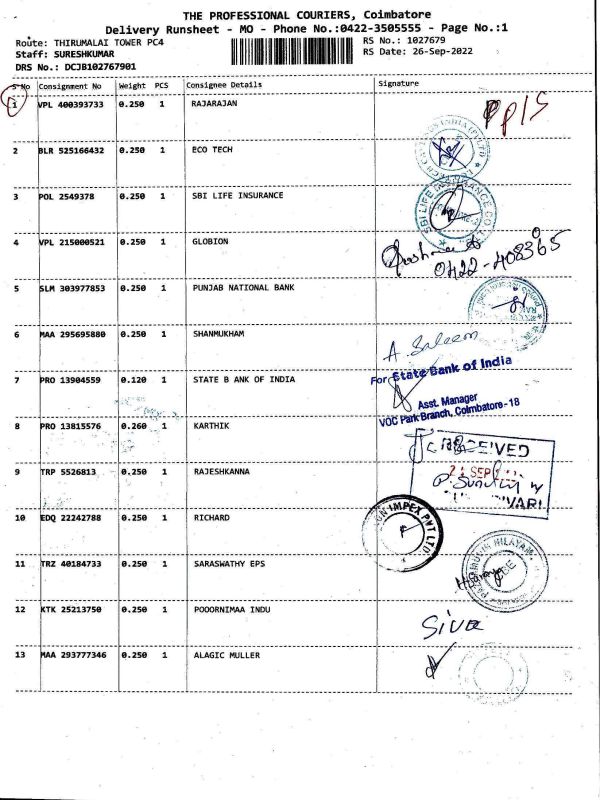 THE PROFESSIONAL COURIERS, Coimbatore
Delivery Runsheet - MO - Phone No.:0422-3505555 - Page No.:1
Route: THIRUMALAI TOWER PC4
RS No.: 1027679
Staff: SURESHKUMAR
RS Date: 26-Sep-2022
DRS No.: DCJB102767901
S No Consignment No Weight PCS Consignee Details Signature
1 VPL 400393733 0.250 1 RAJARAJAN
2 BLR 525166432 0.250 1 ECO TECH
3 POL 2549378 0.250 1 SBI LIFE INSURANCE
SBI LIFE INSURANCE CO LTD
4 VPL 215000521 0.250 1 GLOBION
0422-408365
5 SLM 303977853 0.250 1 PUNJAB NATIONAL BANK
6 MAA 295695880 0.250 1 SHANMUKHAM
A. Saleem
7 PRO 13904559 0.120 1 STATE B ANK OF INDIA
For State Bank of India
Asst. Manager
VOC Park Branch, Coimbatore-18
8 PRO 13815576 0.260 1 KARTHIK
RECEIVED
9 TRP 5526813 0.250 1 RAJESHKANNA
SEP
10 EDQ 22242788 0.250 1 RICHARD
IMPEX PVT LTD
11 TRZ 40184733 0.250 1 SARASWATHY EPS
12 KTK 25213750 0.250 1 POOORNIMAA INDU
Siva
13 MAA 293777346 0.250 1 ALAGIC MULLER